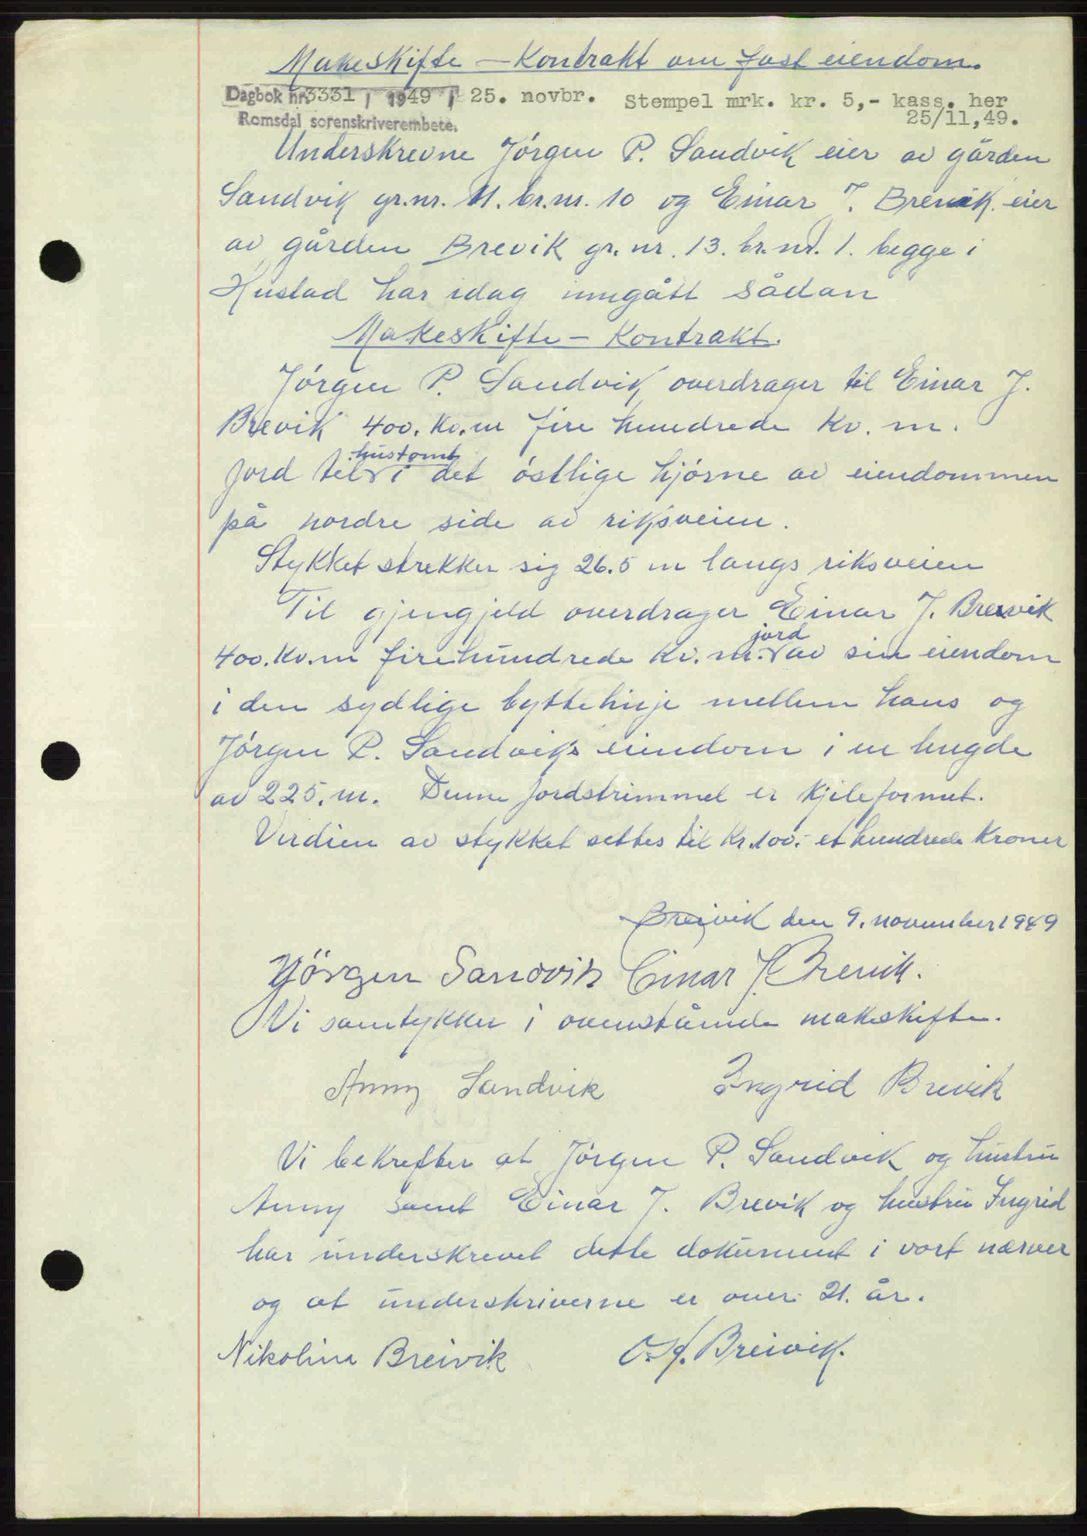 Makeskifte – Kontrakt om fast eiendom.
Dagbok nr. 3331 / 1949 / 25. novbr. Stempel mrk. kr. 5,- kass. her
Romsdal sorenskriverembete. 25/11,49.
Underskrevne Jørgen P. Sandvik eier av gården
Sandvik gr.nr. 11. br.nr. 10 og Einar J. Brevik eier
av gården Brevik gr. nr. 13. br. nr. 1. begge i
Hustad har idag inngått sådan
Makeskifte – Kontrakt.
Jørgen P. Sandvik overdrager til Einar J.
Brevik 400. Kv.m fire hundrede Kv. m.
hustomt
jord til i det østlige hjørne av eiendommen
på nordre side av riksveien.
Stykket strekker sig 26.5 m langs riksveien
Til gjengjeld overdrager Einar J. Brevik
jord
400. Kv.m firehundrede Kv. m. av sin eiendom
i den sydlige byttelinje mellem hans og
Jørgen P. Sandviks eiendom i en lengde
av 225. m. Denne jordstrimmel er kjileformet.
Verdien av stykket settes til Kr. 100.- et hundrede Kroner
Breivik den 9. november 1949
Jörgen Sandvik Einar J. Brevik.
Vi samtykker i ovenstående makeskifte.
Anny Sandvik Ingrid Brevik
Vi bekrefter at Jørgen P. Sandvik og hustru
Anny samt Einar J. Brevik og hustru Ingrid
har underskrevet dette dokument i vort nærver
og at underskriverne er over 21. år.
Nikolina Breivik O. J. Breivik.